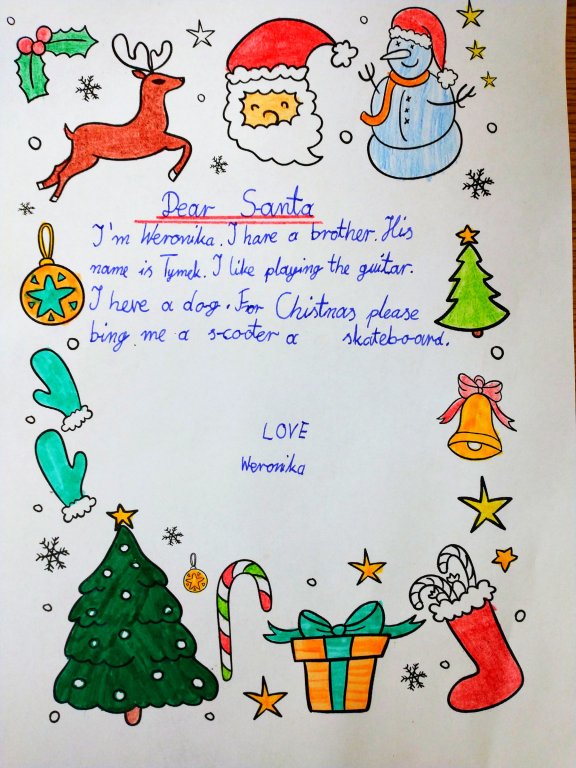 Dear Santa
I'm Weronika. I have a brother. His
name is Tymek. I like playing the guitar.
I heve a dog. For Chistmas please
bing me a scooter a skateboard.
LOVE
Weronika